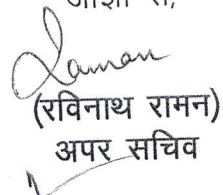 आज्ञा से,
Raman
(रविनाथ रामन)
अपर सचिव